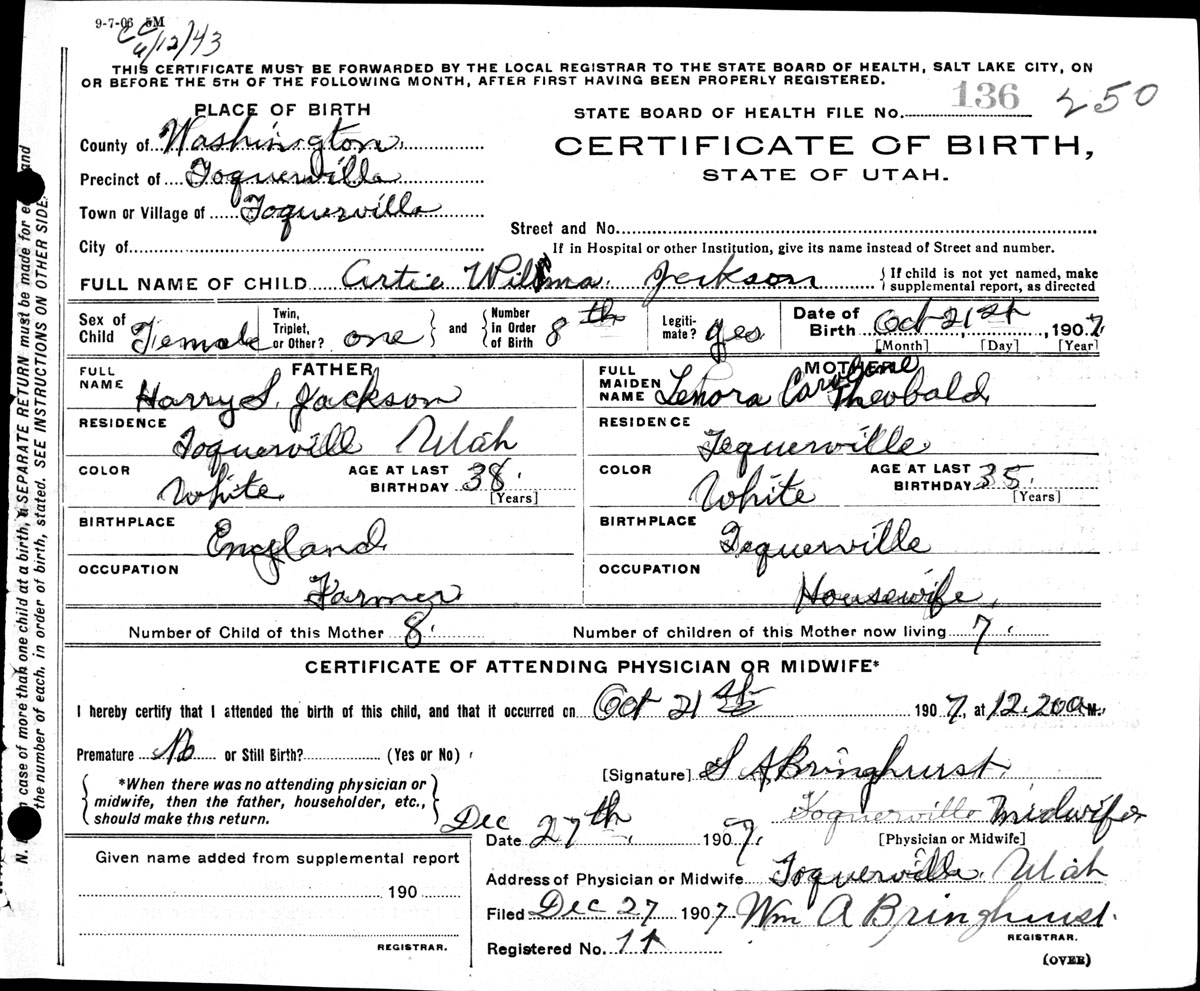 9-7-06 5M
CC
6/12/43
THIS CERTIFICATE MUST BE FORWARDED BY THE LOCAL REGISTRAR TO THE STATE BOARD OF HEALTH, SALT LAKE CITY, ON
OR BEFORE THE 5TH OF THE FOLLOWING MONTH, AFTER FIRST HAVING BEEN PROPERLY REGISTERED.
PLACE OF BIRTH
STATE BOARD OF HEALTH FILE No. 136 250
County of Washington
CERTIFICATE OF BIRTH,
Precinct of Toquerville
STATE OF UTAH.
Town or Village of Toquerville
Street and No.
City of
If in Hospital or other Institution, give its name instead of Street and number.
FULL NAME OF CHILD Artie Wilma Jackson
If child is not yet named, make
supplemental report, as directed
Sex of Child Female
Twin, Triplet, or Other? one
and
Number in Order of Birth 8th
Legiti-mate? yes
Date of Birth Oct 21st, 1907
[Month] [Day] [Year]
FATHER
FULL NAME Harry S. Jackson
MOTHER
FULL MAIDEN NAME Lenora Caroline Theobald
RESIDENCE Toquervill Utah
RESIDENCE Toquerville
COLOR White AGE AT LAST BIRTHDAY 38 [Years]
COLOR White AGE AT LAST BIRTHDAY 35 [Years]
BIRTHPLACE England
BIRTHPLACE Toquerville
OCCUPATION Farmer
OCCUPATION Housewife
Number of Child of this Mother 8 Number of children of this Mother now living 7
CERTIFICATE OF ATTENDING PHYSICIAN OR MIDWIFE*
I hereby certify that I attended the birth of this child, and that it occurred on Oct 21 1907, at 12.20 a M.
Premature No or Still Birth? (Yes or No)
[Signature] S A Bringhurst
*When there was no attending physician or
midwife, then the father, householder, etc.,
should make this return.
Toquerville Midwife
Date Dec 27th 1907 [Physician or Midwife]
Given name added from supplemental report
190
REGISTRAR.
Address of Physician or Midwife Toquerville Utah
Filed Dec 27 1907 Wm A Bringhurst
REGISTRAR.
Registered No. 11
(OVER)
case of more than one child at a birth, a SEPARATE RETURN must be made for and
the number of each, in order of birth, stated. SEE INSTRUCTIONS ON OTHER SIDE.